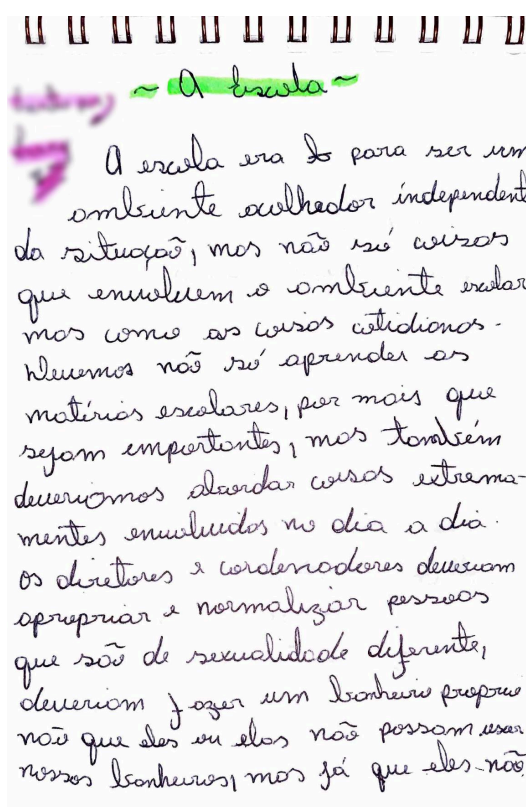 ~ A Escola ~
A escola era para ser um
ambiente acolhedor independent
da situação, mas não só coisas
que envolvem o ambiente escolar
mas como as coisas cotidianas.
Devemos não só aprender as
matérias escolares, por mais que
sejam importantes, mas também
deveriamos abordar coisas extrema-
mentes envolvidos no dia a dia.
os diretores e cordenadores deveriam
apropriar e normalizar pessoas
que são de sexualidade diferente,
deveriam fazer um banheiro proprio
não que eles ou elas não possam usar
nossos banheiros, mas já que eles não